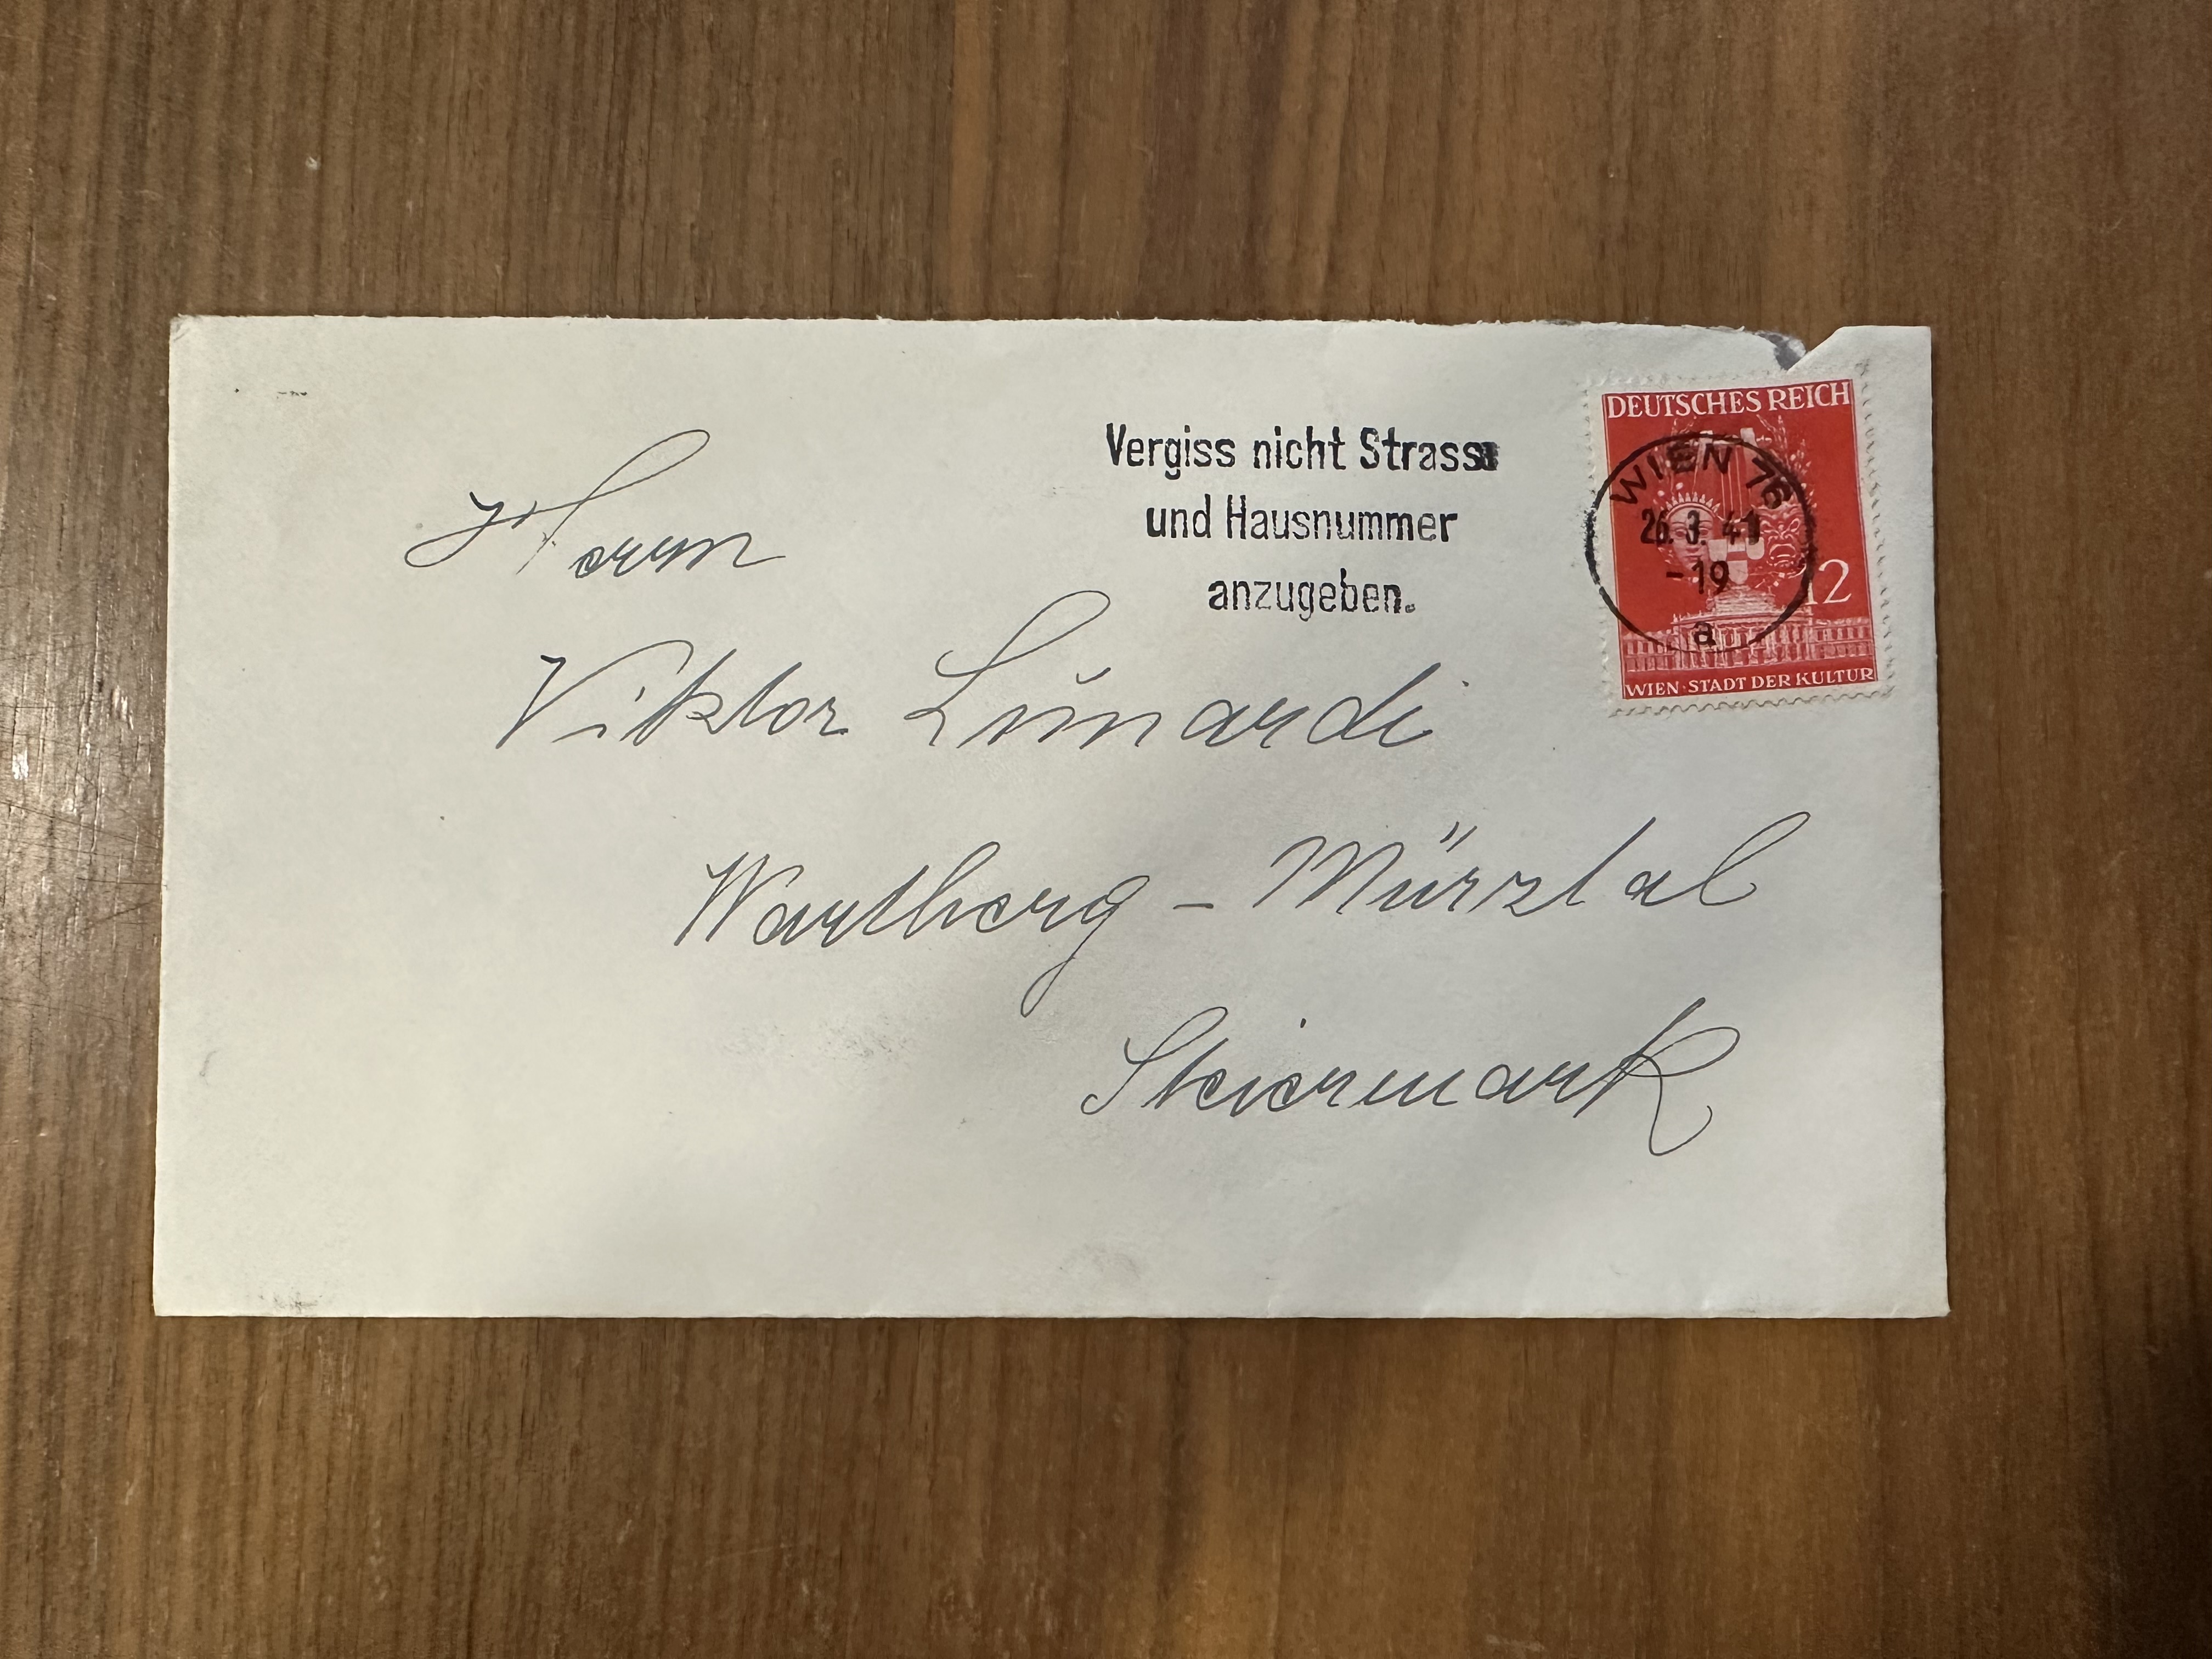 Vergiss nicht Strasse
und Hausnummer
anzugeben.
DEUTSCHES REICH
WIEN 76
26.3.41
-19
a
12
WIEN·STADT DER KULTUR
Herrn
Viktor Lunardi
Wartberg - Mürztal
Steiermark